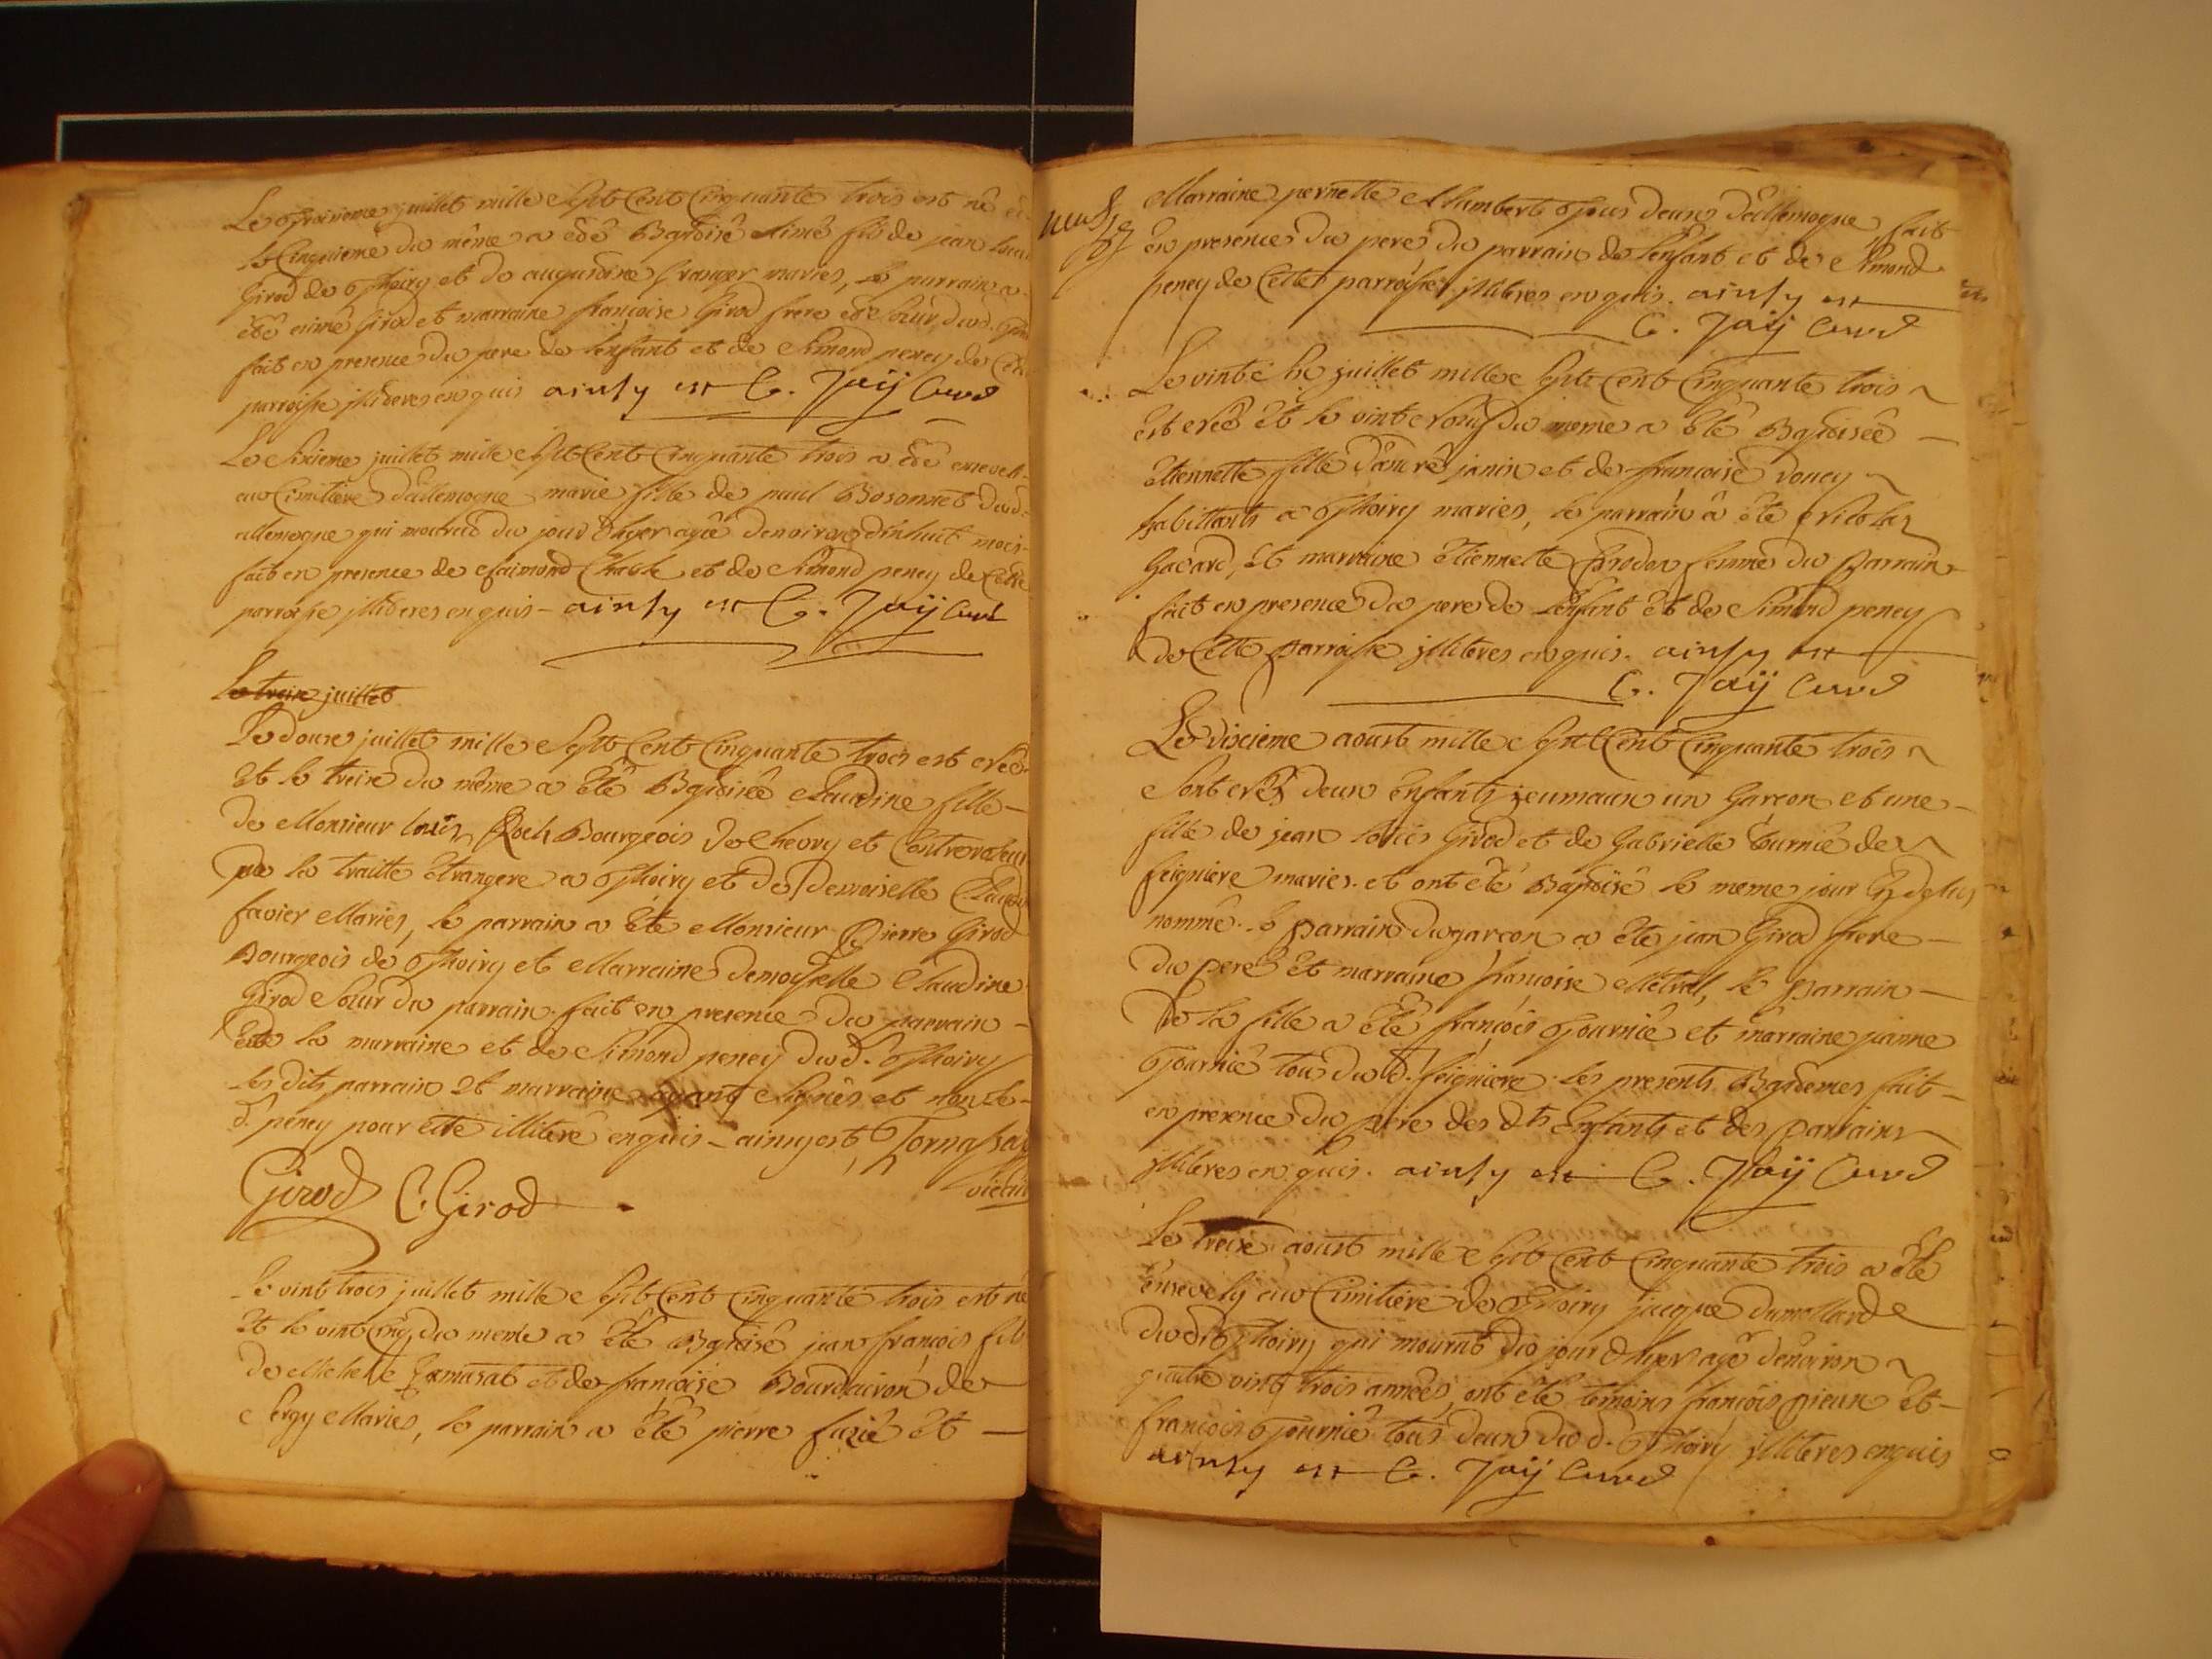 Le troisieme juillet mille sept Cent Cinquante trois est né et
le Cinquieme du même a été Baptisé Aimé fils de jean louis
Girod de Thoiry et de augustine granger mariés, le parrain a
été aimé Girod et marraine françoise Girod frere et soeur dud.
fait en presence du pere de l'enfant et de Simond peney de Cette
parroisse illiteres enquis ainsy est C. Jaÿ Curé
Le Sixieme juillet mille sept Cent Cinquante trois a été enseveli
au Cimitiere d'allemogne marie fille de paul Bosonnet dud.
allemogne qui mourut du jour d'hyer agée denviron dixhuit mois
fait en presence de et de Simond peney de Cette
parroisse illiteres enquis - ainsy est C. Jaÿ Curé
Le treize juillet
Le douze juillet mille Sept Cent Cinquante trois est née
Et le treize du même a été Baptisée Claudine fille
de Monsieur louis Roch Bourgeois de Chevry et Controleur
de la traitte étrangere a Thoiry et de Demoiselle
favier Mariés, le parrain a été Monsieur Pierre Girod
Bourgeois de Thoiry et Marraine demoiselle Claudine
Girod Soeur du parrain. fait en presence du parrain
de la marraine et de Simond peney dud. Thoiry
les dits parrain et marraine ayant Signés et non le
d. peney pour etre illiteré enquis - ainsy est, Tornassay
vicaire
Girod C. Girod
Le vint trois juillet mille Sept Cent Cinquante trois est né
Et le vint cinq du meme a été Baptisé jean françois fils
de Michel et de françoise de
Sergy Mariés, le parrain a été pierre et
Marraine pernette Humbert Tous deux d'allemogne, fait
en presence du pere du parrain de l'enfant et de Simond
peney de Cette parroisse illiteres enquis. ainsy est
C. Jaÿ Curé
Le vint juillet mille Sept Cent Cinquante trois
est née et le vint neuf du meme a été Baptisée
étiennette fille d'andré janin et de françoise doucy
habittants a Thoiry mariés, le parrain a été Nicolas
Gavard, et marraine étiennette femme du Parrain
fait en presence du pere de l'enfant et de Simond peney
de Cette parroisse illiteres enquis. ainsy est
C. Jaÿ Curé
Le dixieme aoust mille Sept Cent Cinquante trois
Sont nés deux enfants jeumaux un Garçon et une
fille de jean louis Girod et de Gabrielle Tournié de
feigniere mariés. et ont été Baptisé le meme jour
nommé. le Parrain du garçon a été jean Girod frere
du pere et marraine françoise Métral, le Parrain
de la fille a été françois Tournié et marraine janne
Tournié tous dud. feigniere. les presents Baptemes fait
en presence du pere des dts Enfants et des Parrains
illiteres enquis. ainsy est C. Jaÿ Curé
Le treize aoust mille Sept Cent Cinquante trois a été
ensevely au Cimitiere de Thoiry jacque dumollard
dud. Thoiry qui mourut du jour d'hyer agé denviron
quatre vint trois années, ont été temoins françois pieux Et
françois Tournié tous deux dud. Thoiry illiteres enquis
ainsy est C. Jaÿ Curé